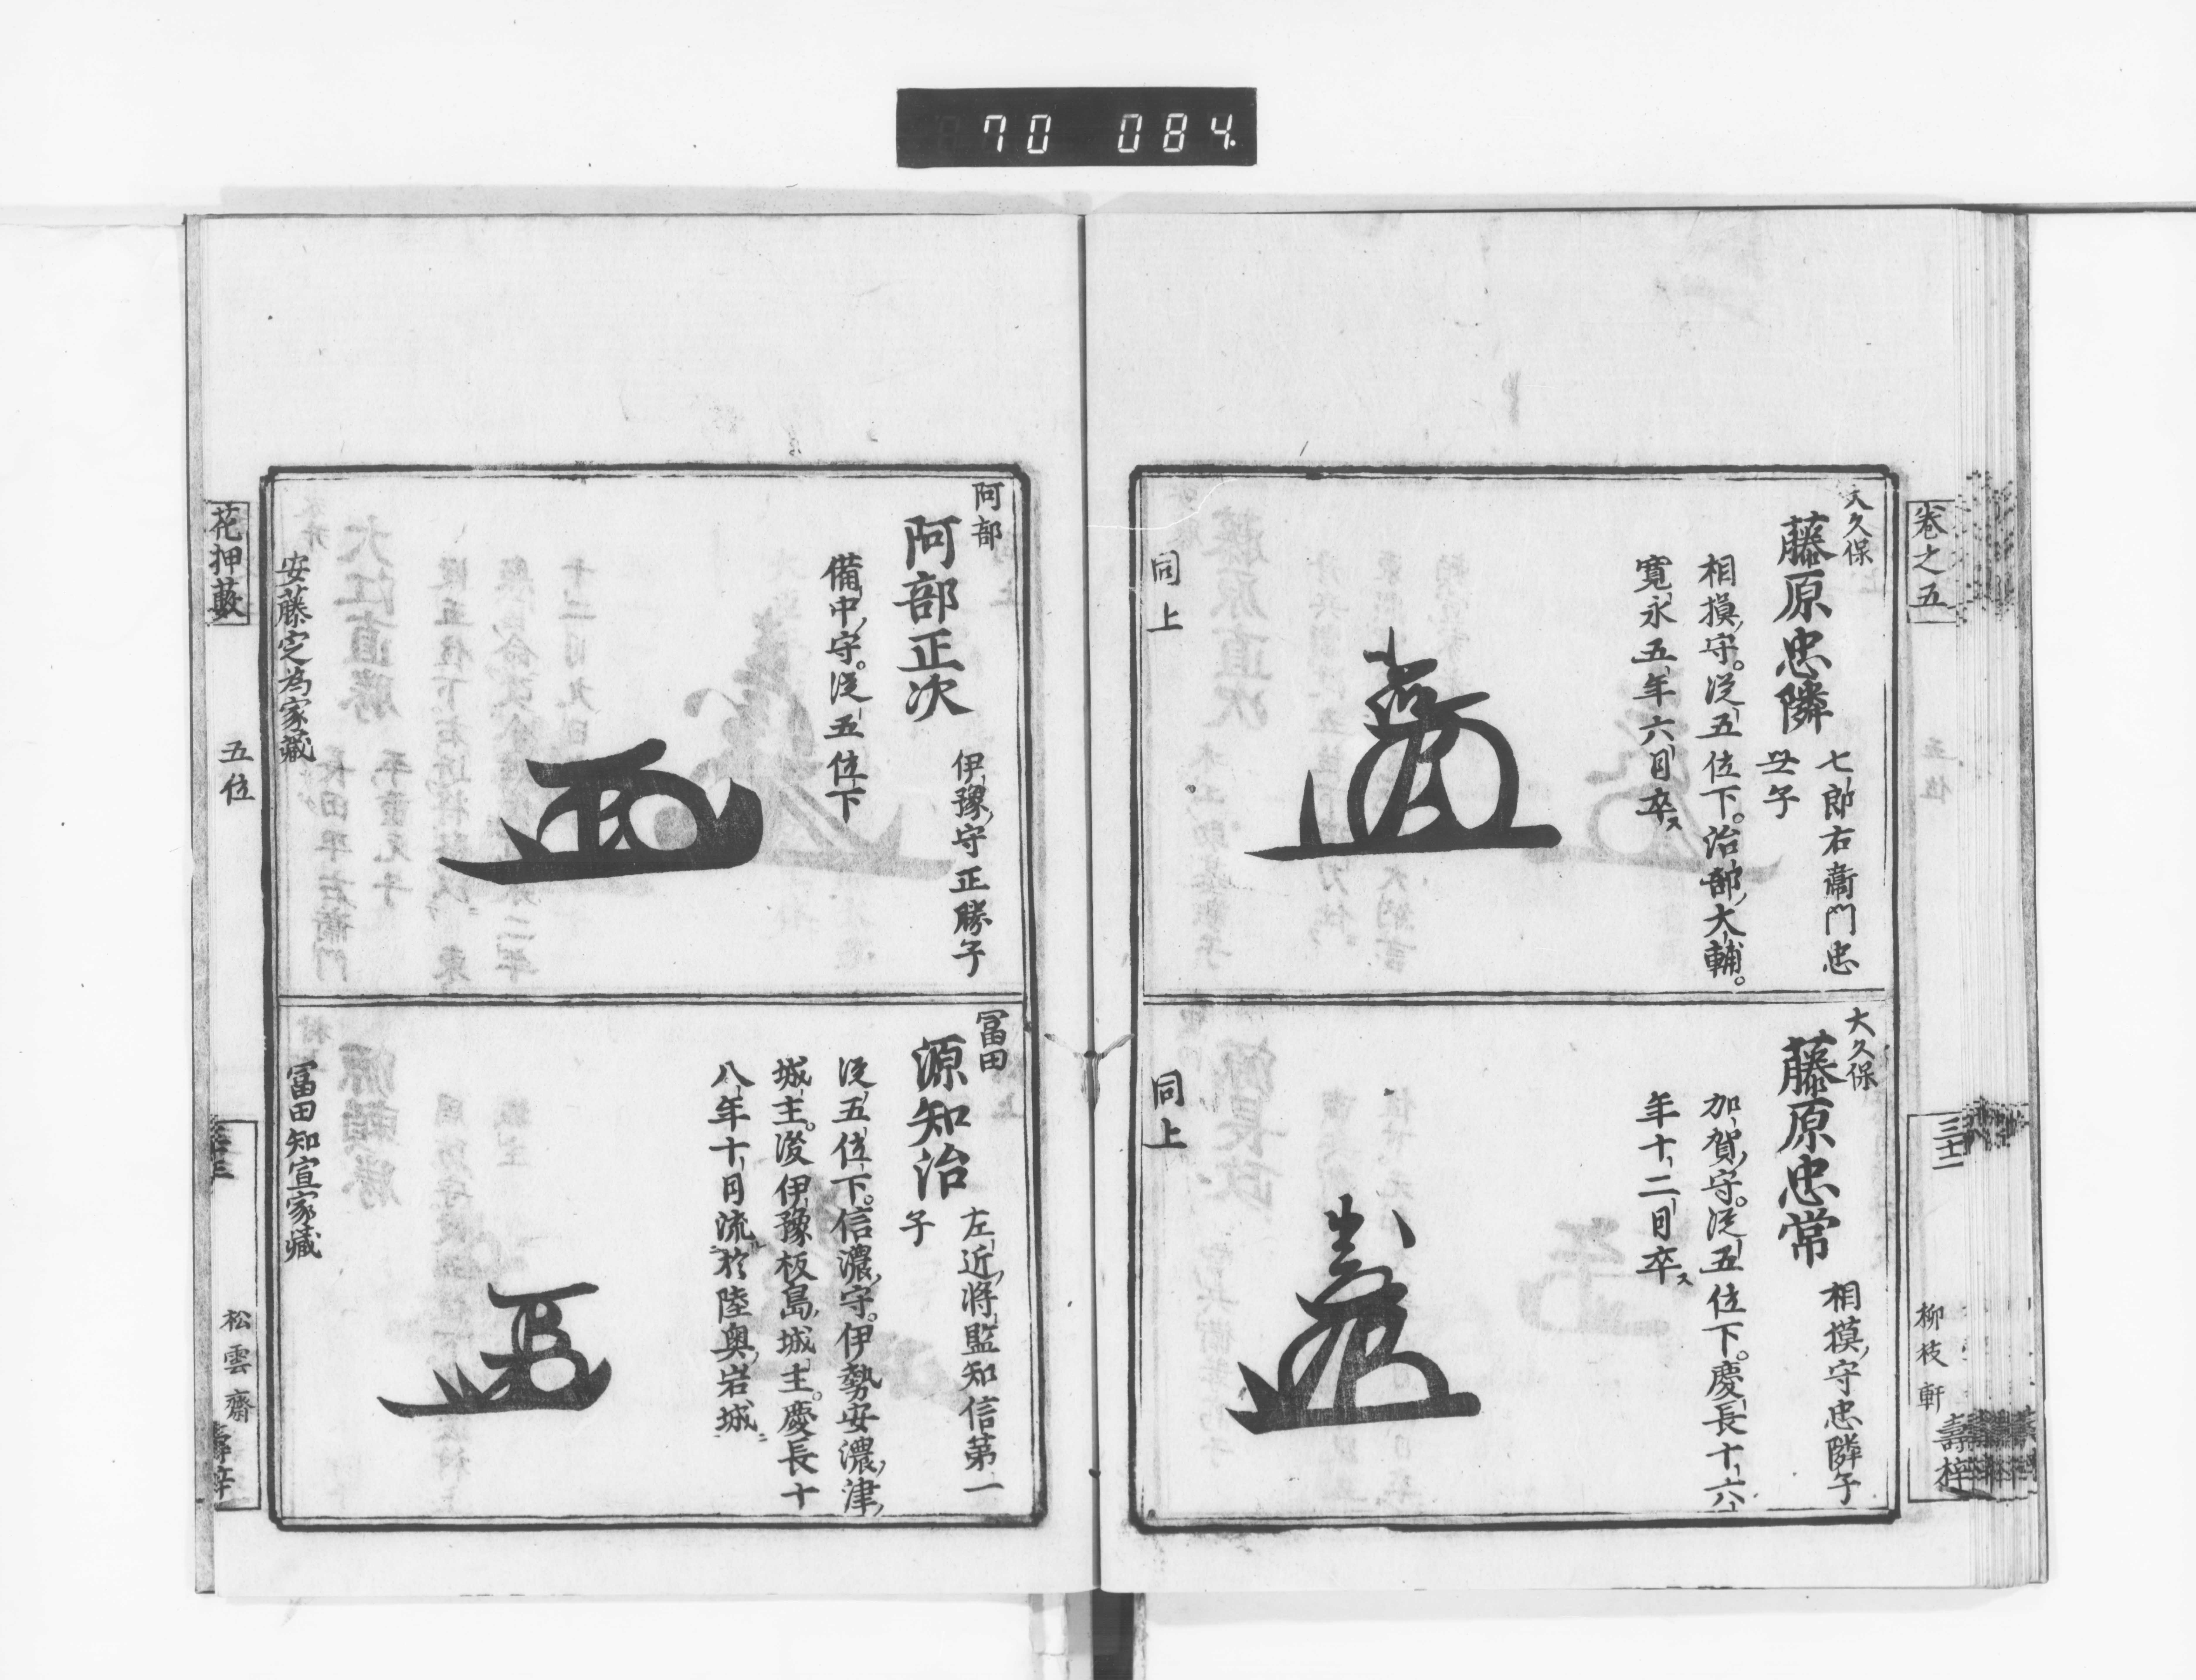 70 084
卷之五
三十二
柳枝軒
壽梓
大久保
藤原忠隣
七郎右衞門忠
世子
相摸守。從五位下。治部大輔。
寛永五年六月卒ス
同上
大久保
藤原忠常
相摸守忠隣子
加賀守。從五位下。慶長十六
年十二月卒ス
同上
阿部
阿部正次
伊豫守正勝子
備中守。從五位下
安藤定爲家藏
冨田
源知治
左近將監知信第一
子
從五位下。信濃守。伊勢安濃津
城主。後伊豫板島城主。慶長十
八年十月流於陸奥岩城
冨田知宣家藏
花押藪
五位
松雲齋